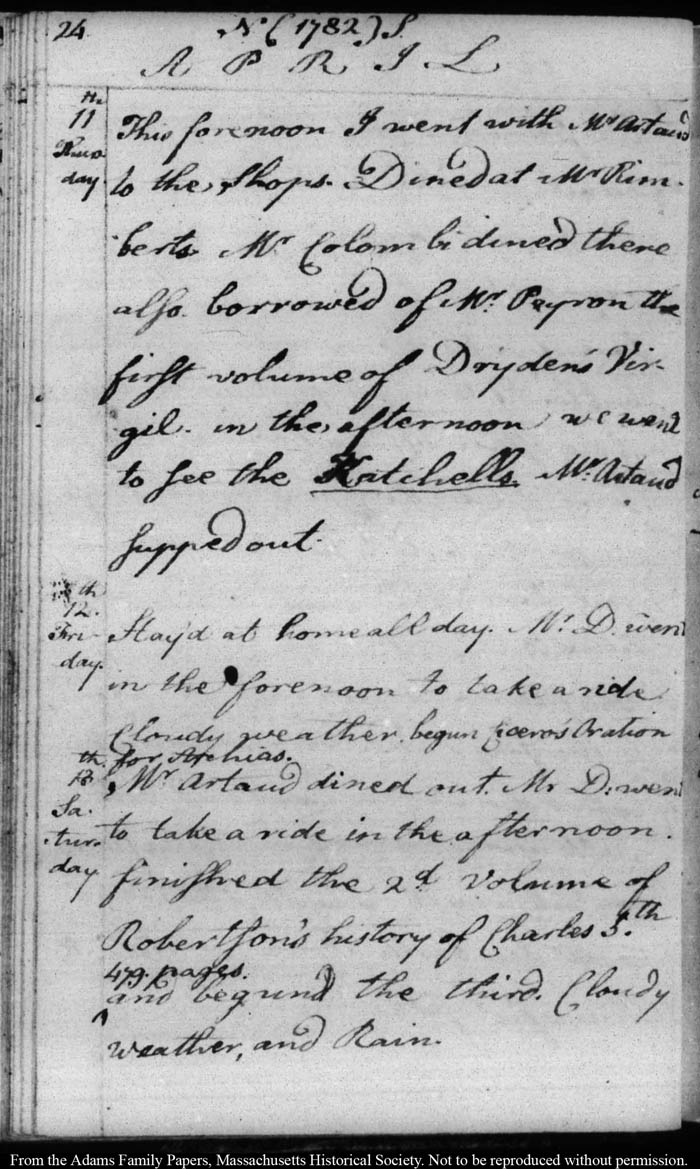 24
No. (1782) S.
A P R I L
th
11
Thurs-
day
This forenoon I went with Mr. Artaud
to the shops. Dined at Mr. Rim-
berts. Mr. Colombi dined there
also. borrowed of Mr. Peyron the
first volume of Dryden's Vir-
gil. in the afternoon we went
to see the Katchells. Mr. Artaud
supped out.
th
12.
Fri-
day.
Stay'd at home all day. Mr. D. went
in the forenoon to take a ride
Cloudy weather. begun Cicero's Oration
for Archias.
th
13.
Sa-
tur-
day
Mr. Artaud dined out. Mr D. went
to take a ride in the afternoon.
finished the 2d. volume of
Robertson's history of Charles 5.th
479. pages.
and begund the third. Cloudy
weather, and Rain.
From the Adams Family Papers, Massachusetts Historical Society. Not to be reproduced without permission